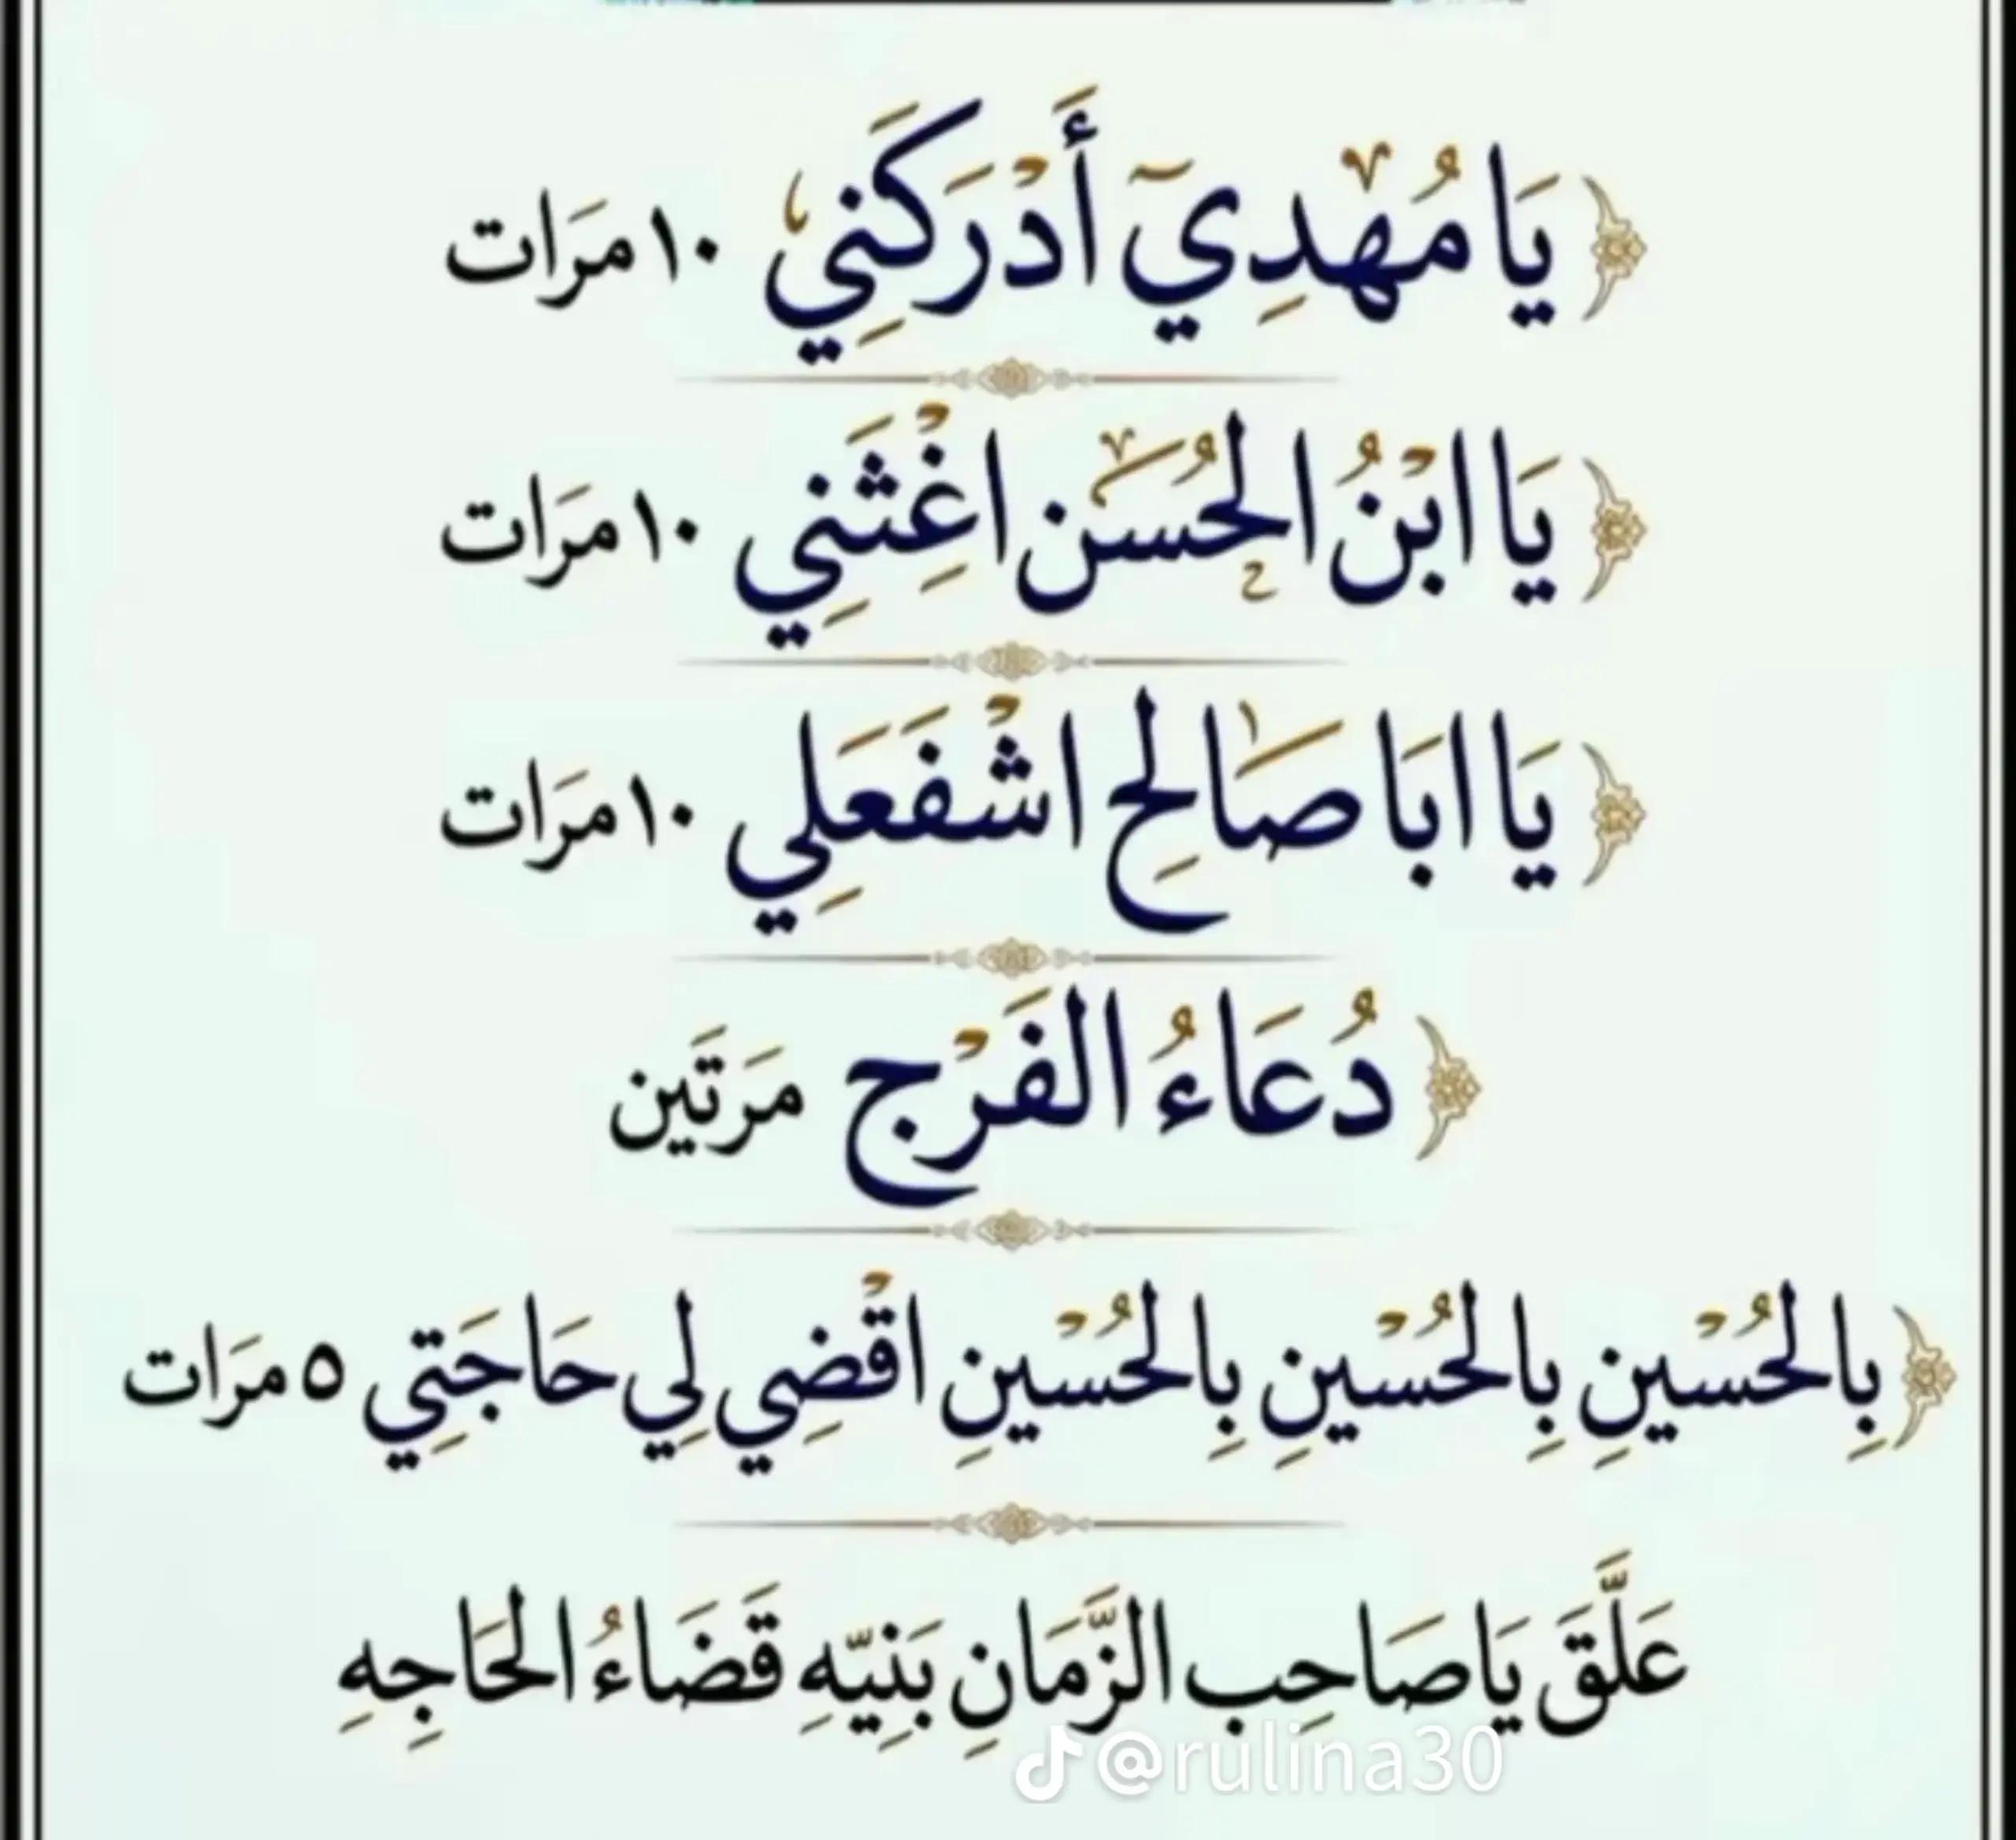 يَا مُهْدِيٓ أَدْرَكَنِي ١٠ مرَات
يَا ابْنُ الحُسَن اغِْثَنِي ١٠ مرَات
يَا ابَا صَالِح اشْفَعَلِي ١٠ مرَات
دُعَاءُ الفَرْج مَرتَين
بِالحُسْينِ بِالحُسْينِ بِالحُسْينِ اقْضِي لِي حَاجَتِي ٥ مرَات
عَلَّقَ يَا صَاحِب الزَّمَانِ بَنِيّهِ قَضَاءُ الحَاجِهِ
@rulina30